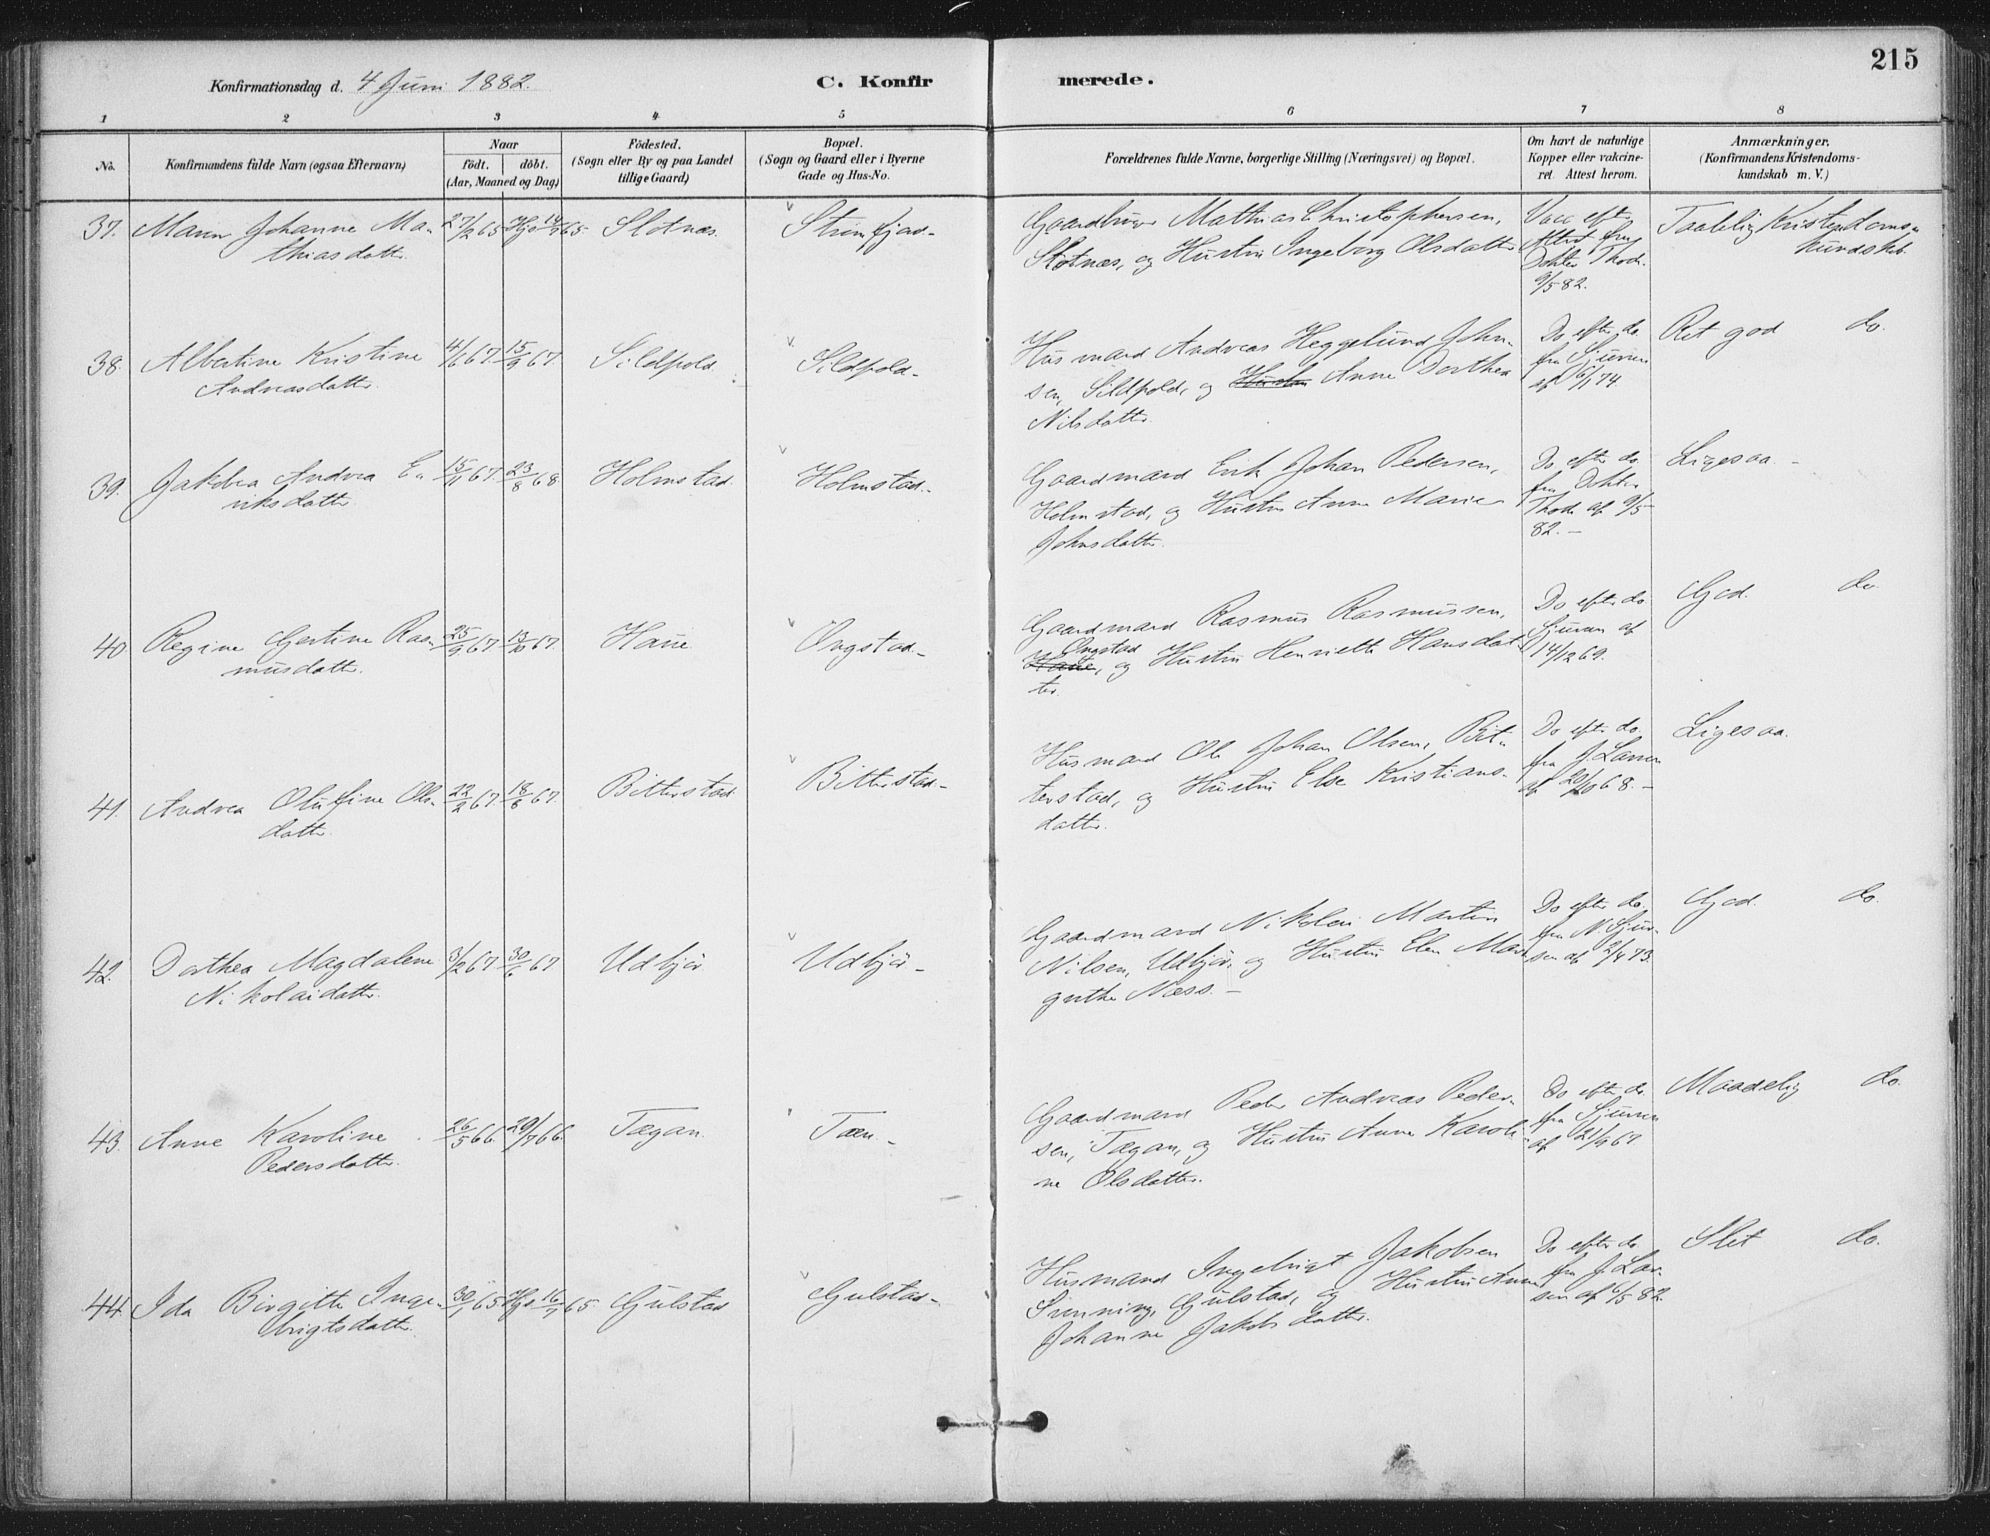 215
Konfirmationsdag d. 4 Juni 1882.
C. Konfirmerede.
1 2 3 4 5 6 7 8
No.
Konfirmandens fulde Navn (ogsaa Efternavn)
Naar
födt. döbt.
(Aar, Maaned og Dag)
Födested.
(Sogn eller By og paa Landet
tillige Gaard)
Bopæl.
(Sogn og Gaard eller i Byerne
Gade og Hus-No.
Forældrenes fulde Navne, borgerlige Stilling (Næringsvei) og Bopæl.
Om havt de naturlige
Kopper eller vakcine-
ret. Attest herom.
Anmærkninger.
(Konfirmandens Kristendoms-
kundskab m. V.)
37. Maren Johanne Ma- 27/2 65 Hjd 14/5 65 Slotnæs. Strumfjord-
thiasdatter.
Gaardbruger Mathias Christophersen,
Slotnæs, og Hustru Ingeborg Olsdatter
Vacc efter
Attest fra
Dokter Thode
9/5 82.
Taalelig Kristendoms-
kundskab.
38. Albertine Kristine 4/6 67. 15/9 67. Sildpold. Sildpold-
Andreasdatter.
Husmand Andreas Heggelund John-
sen, Sildpold, og Hustru Anne Dorthea
Nilsdatter.
Do efter do
fra Sjursen
af 6/1 74
Ret god do.
39. Jakobea Andrea E- 15/11 67. 23/8 68 Holmstad. Holmstad-
riksdatter.
Gaardmand Erik Johan Pedersen,
Holmstad, og Hustru Anne Marie
Johnsdatter.
Do efter do
fra Dokter
Thode af 9/5
82.-
Ligesaa-
40 Regine Gjertine Ras- 25/9 67 13/10 67. Haue Ongstad-
musdatter.
Gaardmand Rasmus Rasmussen,
Ongstad
Haue, og Hustru Henriette Hansdat-
ter.
Do efter do.
Sjursen af
14/12 69.
God. do
41. Andrea Olufine Ols- 22/2 67. 18/8 67. Bitterstad. Bitterstad-
datter.
Husmand Ole Johan Olsen, Bit-
terstad, og Hustru Else Kristians-
datter.
Do efter do.
fra J. Larsen
af 20/10 68.-
Ligesaa.
42. Dorthea Magdalene 3/2 67 30/6 67 Udbjör Udbjör-
Nikolaidatter.
Gaardmand Nikolai Martin
Nilsen, Udbjör, og Hustru Elen Mar-
grethe Næss.-
Do efter do.
fra N. Sjur-
sen af 2/4 73.
God. do.
43. Anne Karoline 26/5 66. 29/7 66. Tægan. Tæen-
Pedersdatter.
Gaardmand Peder Andreas Peder-
sen, Tægan, og Hustru Anne Karoli-
ne Olsdatter.
Do efter do
fra Sjursen
af 21/9 67
Maadelig do.
44. Ida Birgitte Inge- 30/1 65 Hjd 16/4 65. Gjulstad Gjulstad-
brigtsdatter.
Husmand Ingebrigt Jakobsen
Sunning, Gjulstad, og Hustru Anne
Johanne Jakobsdatter.
Do efter do
fra J. Lar-
sen af 6/5 82.
Slet do.